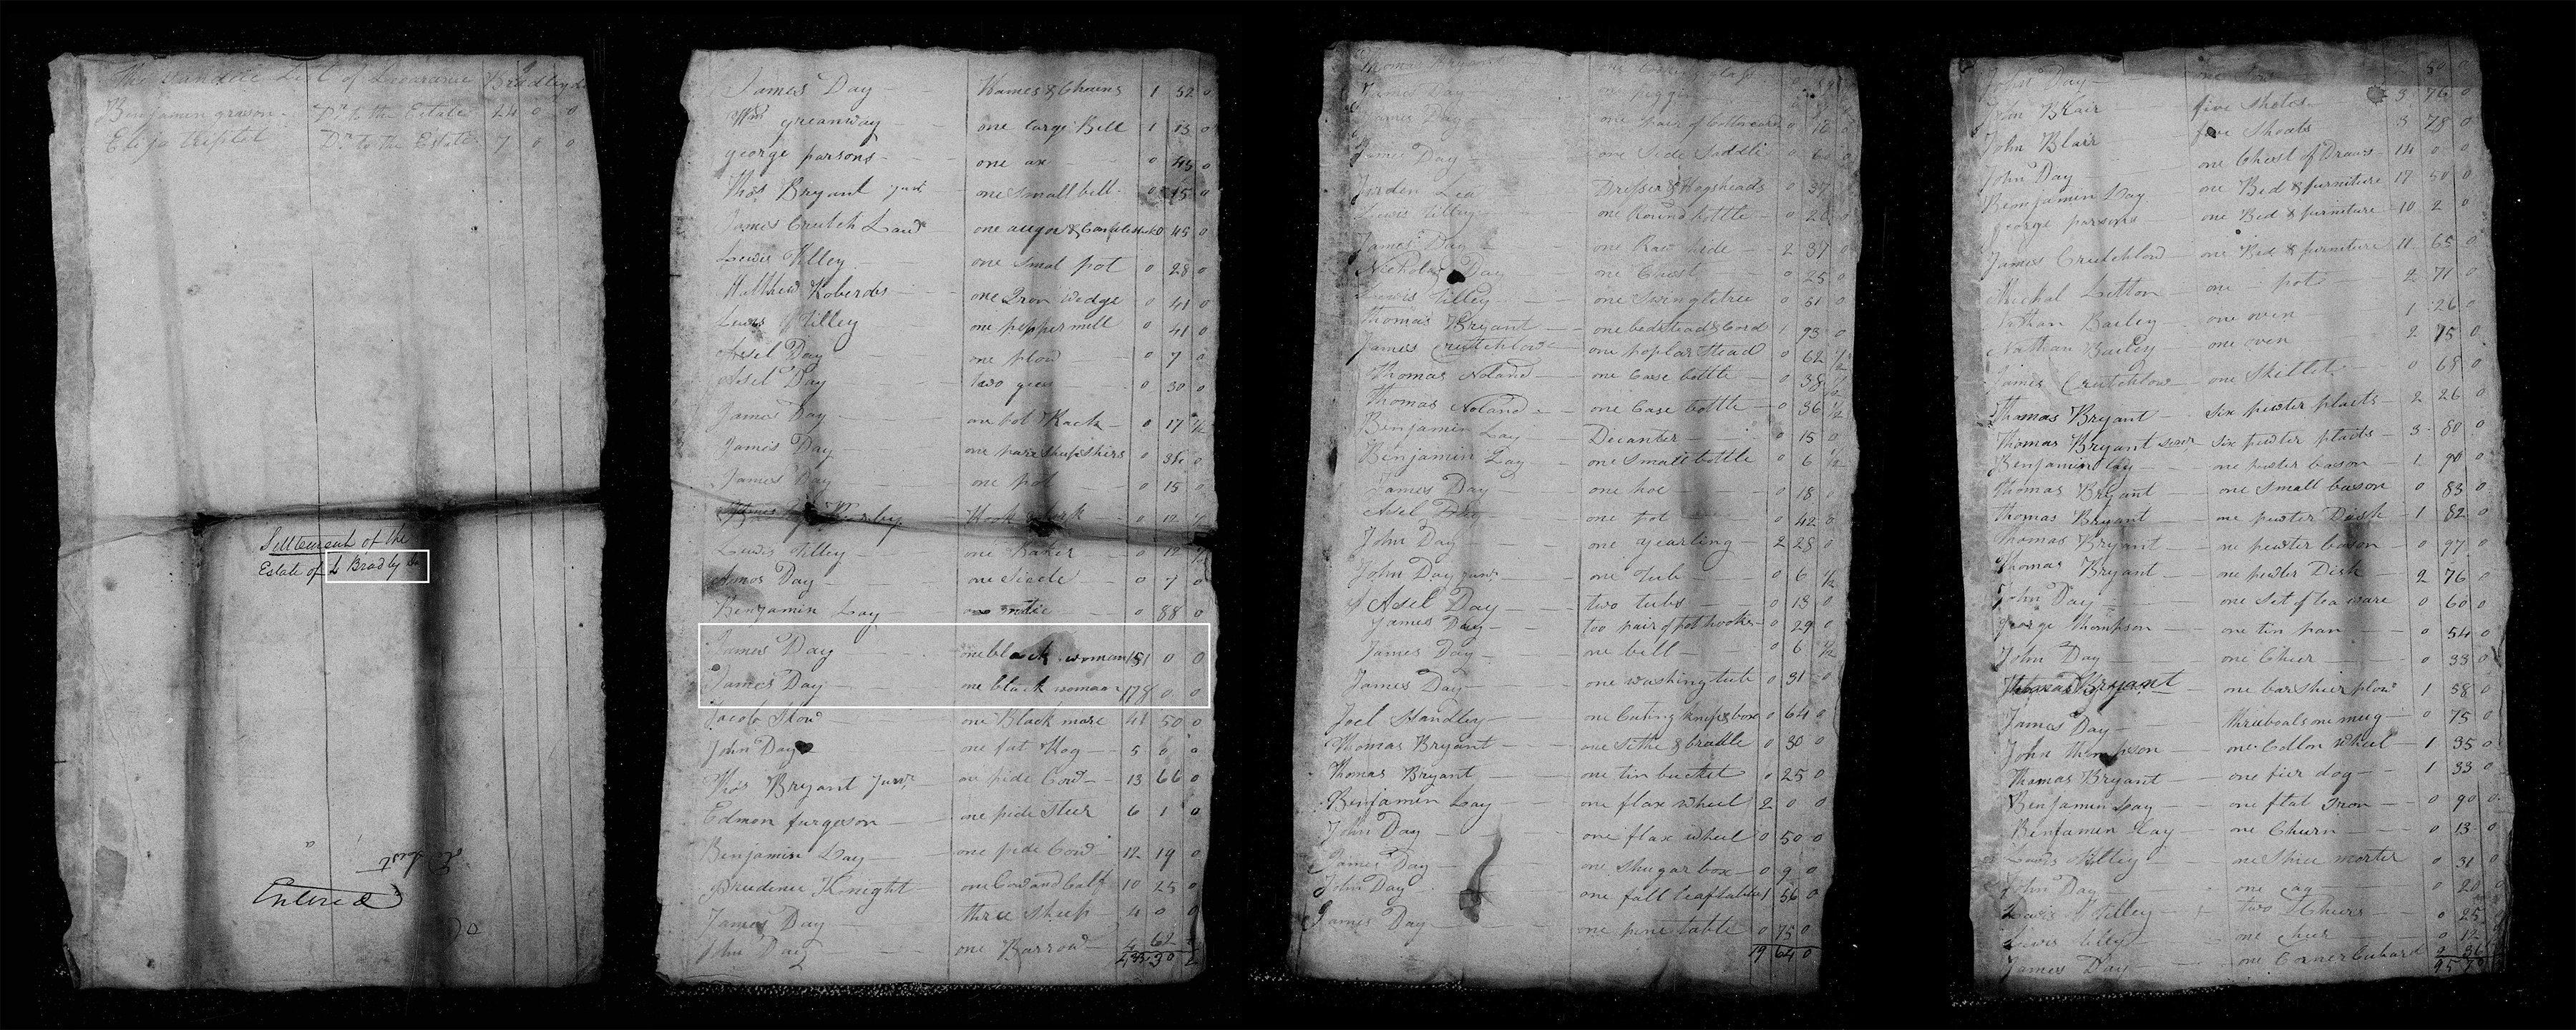 The Vandue List of Lawrance Bradley
Benjamin grason Dr to the Estate 24 0 0
Elija Dr to the Estate 7 0 0
Settlement of the
Estate of L Bradly
List
Entered
James Day Hames & Chains 1 52 0
Wm greanway one large Bell 1 13 0
george parsons one ax 0 45 0
Thos Bryant junr one small bell 0 15 0
James Crutch Law one auger & Candlestick 0 45 0
Lewis Tilley one smal pot 0 28 0
Matthew Roberds one Iron wedge 0 41 0
Lewis Tilley one pepper mill 0 41 0
Asel Day one plow 0 7 0
Asel Day two gees 0 30 0
James Day one pot Rack 0 17 ½
James Day one pare Sheepshirs 0 0
James Day one pot 0 15 0
Hook 0 12 ½
Lewis Tilley one 0 12 ½
Amos Day one Sicele 0 7 0
Benjamin Lay one 0 88 0
James Day one black woman 151 0 0
James Day one black woman 178 0 0
Jacob Stow one Black mare 41 50 0
John Day one fat Hog 5 0 0
Thos Bryant junr one pide Cow 13 66 0
Edmon furgeson one pide Steer 6 1 0
Benjamin Lay one pide Cow 12 19 0
Prudence Knight one Cow and Calf 10 25 0
James Day three sheep 4 0 0
John Day one Barrow 4 62
Thomas Bryant one
James Day one piggin
James Day one pair of Cotton cards 0 76 0
James Day one Side Saddle 0 60 0
Jorden Lea Dresser & Hogsheads 0 37
Lewis Tilley one Round bottle 0
James Day one Raw hide 2 37 0
Nicholas Day one Chest 0 25 0
Lewis Tilley one Swingletree 0 31 0
Thomas Bryant one bedstead & Cord 1 93 0
James Crutchlow one poplar Stead 0 62 ½
Thomas Noland one Case bottle 0 38 ½
Thomas Noland one Case bottle 0 36 ½
Benjamin Lay Decanter 0 15 0
Benjamin Lay one small bottle 0 6 ½
James Day one hoe 0 18 0
Asel Day one pot 0 42 0
John Day one yearling 2 28 0
John Day junr one Tub 0 6 ½
Asel Day two tubs 0 13 0
James Day too pair of pot hookes 0 29 0
James Day one bell 0 6 ½
James Day one washing tub 0 31 0
Joel Standley one Cuting knife & box 0 64 0
Thomas Bryant one Sithe & Cradle 0 30 0
Thomas Bryant one tin bucket 0 25 0
Benjamin Lay one flax wheel 2 0 0
John Day one flax wheel 0 50 0
James Day one Shugar box 0 9 0
John Day one fall leaf table 1 56 0
James Day one pine table 0 75 0
19 64 0
John Day one 50 0
John Blair five Shotes 3 76 0
John Blair five Shoats 3 78 0
John Day one Chest of Draws 14 0 0
Benjamin Lay one Bed & furniture 17 50 0
george parsons one Bed & furniture 10 2 0
James Crutchlow one Bed & furniture 11 65 0
Michal Litton one pot 2 71 0
Nathan Bailey one oven 1 26 0
Nathan Bailey one oven 2 75 0
James Crutchlow one Skillet 0 68 0
Thomas Bryant Six pewter plaets 2 26 0
Thomas Bryant senr Six pewter plaits 3 80 0
Benjamin Lay one pewter bason 1 90 0
Thomas Bryant one small bason 0 83 0
Thomas Bryant one pewter Dish 1 82 0
Thomas Bryant one pewter bason 0 97 0
Thomas Bryant one pewter Dish 2 76 0
John Day one Set of tea ware 0 60 0
George Thompson one tin pan 0 54 0
John Day one Cheer 0 33 0
Thomas Bryant one barsheer plow 1 58 0
James Day three boals one mug 0 75 0
John thompson one Cotton wheel 1 35 0
Thomas Bryant one fier dog 1 33 0
Benjamin Lay one flat Iron 0 90 0
Benjamin Lay one Churn 0 13 0
Lewis Tilley one morter 0 31 0
John Day one cag 0 20 0
Lewis Tilley two Cheers 0 25
Lewis Tilley one cheer 0 12
James Day one Corner Cubard 2